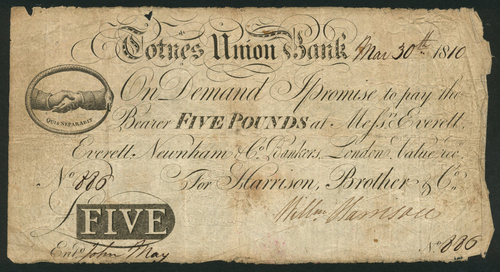 Totnes Union Bank Mar 30th 1810
QUIS SEPARABIT
On Demand I promise to pay the
Bearer FIVE POUNDS at Messrs Everett,
Everett, Newnham & Co. Bankers, London, Value rec.
No 886
For Harrison, Brother & Co.
FIVE
Willm Harrison
Entd John May
No 886